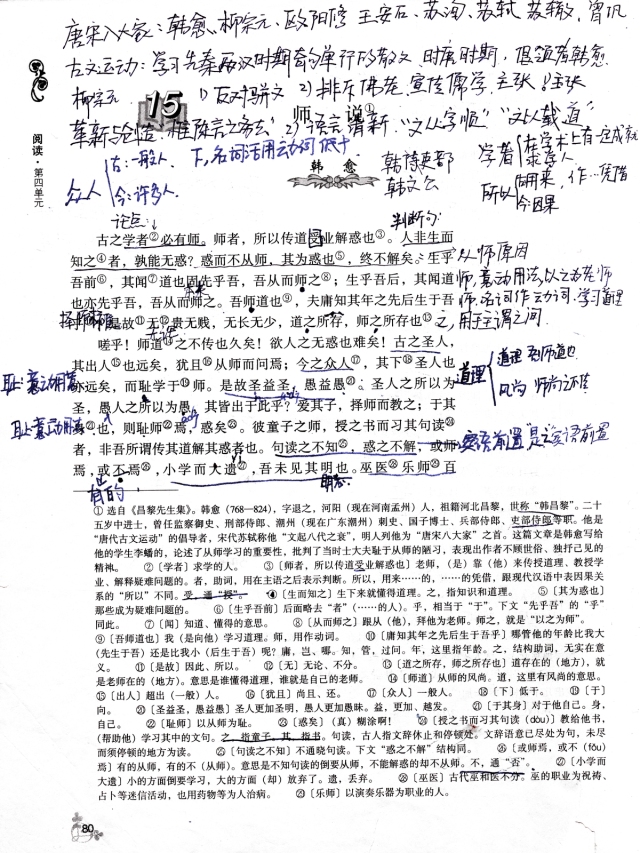 唐宋八大家：韩愈、柳宗元、欧阳修 王安石、苏洵、苏轼 苏辙、曾巩
古文运动：学习先秦两汉时期奇句单行的散文 时唐时期，倡领者韩愈
柳宗元 1)反对骈文 2)排斥佛老，宣传儒学，主张
革新与创造 2)语言清新，"文从字顺" "文以载道"
15 师说①
韩愈
韩吏部
韩文公
学者 在学术上有一定成就
求学的人
所以 用来，作…凭借
今因果
众人 古：一般人、下，名词活用动词 低于
今：许多人
阅读·第四单元
论点：
判断句
古之学者②必有师。师者，所以传道受业解惑也③。人非生而
知之④者，孰能无惑？惑而不从师，其为惑也⑤，终不解矣。生乎
从师原因
吾前⑥，其闻⑦道也固先乎吾，吾从而师之⑧；生乎吾后，其闻道
师，意动用法，以之为老师
也亦先乎吾，吾从而师之。吾师道也⑨，夫庸知其年之先后生于吾
师，名词作动词，学习道理
择师标准
乎⑩？是故⑪无⑫贵无贱，无长无少，道之所存，师之所存也⑬。
之，用于主谓之间
嗟乎！师道⑭之不传也久矣！欲人之无惑也难矣！古之圣人，
其出人⑮也远矣，犹且⑯从师而问焉；今之众人⑰，其下⑱圣人也
道理
亦远矣，而耻学于⑲师。是故圣益圣，愚益愚⑳。圣人之所以为
风尚 师尚
耻：意动用法
圣，愚人之所以为愚，其皆出于此乎？爱其子，择师而教之；于其
身㉑也，则耻师㉒焉，惑矣㉓。彼童子之师，授之书而习其句读㉔
者，非吾所谓传其道解其惑者也。句读之不知㉕，惑之不解，或师
宾语前置 "是之"宾语前置
焉，或不焉㉖，小学而大遗㉗，吾未见其明也。巫医㉘乐师㉙百
有的
明智
①选自《昌黎先生集》。韩愈（768—824），字退之，河阳（现在河南孟州）人，祖籍河北昌黎，世称“韩昌黎”。二十
五岁中进士，曾任监察御史、刑部侍郎、潮州（现在广东潮州）刺史、国子博士、兵部侍郎、吏部侍郎等职。他是
“唐代古文运动”的倡导者，宋代苏轼称他“文起八代之衰”，明人列他为“唐宋八大家”之首。这篇文章是韩愈写给
他的学生李蟠的，论述了从师学习的重要性，批判了当时士大夫耻于从师的陋习，表现出作者不顾世俗、独抒己见的
精神。 ②〔学者〕求学的人。 ③〔师者，所以传道受业解惑也〕老师，（是）靠（他）来传授道理、教授学
业、解释疑难问题的。者，助词，用在主语之后表示判断。所以，用来……的，……的凭借，跟现代汉语中表因果关
系的“所以”不同。受，通“授”。 ④〔生而知之〕生下来就懂得道理。之，指知识和道理。 ⑤〔其为惑也〕
那些成为疑难问题的。 ⑥〔生乎吾前〕后面略去“者”（……的人）。乎，相当于“于”。下文“先乎吾”的“乎”
同此。 ⑦〔闻〕知道、懂得的意思。 ⑧〔从而师之〕跟从（他），拜他为老师。师之，就是“以之为师”。
⑨〔吾师道也〕我（是向他）学习道理。师，用作动词。 ⑩〔庸知其年之先后生于吾乎〕哪管他的年龄比我大
（先生于吾）还是比我小（后生于吾）呢？庸，岂、哪。知，管，过问。年，这里指年龄。之，结构助词，无实在意
义。 ⑪〔是故〕因此、所以。 ⑫〔无〕无论、不分。 ⑬〔道之所存，师之所存也〕道存在的（地方），就
是老师在的（地方）。意思是谁懂得道理，谁就是自己的老师。 ⑭〔师道〕从师的风尚。道，这里有风尚的意思。
⑮〔出人〕超出（一般）人。 ⑯〔犹且〕尚且、还。 ⑰〔众人〕一般人。 ⑱〔下〕低于。 ⑲〔于〕
向。 ⑳〔圣益圣，愚益愚〕圣人更加圣明，愚人更加愚昧。益，更加、越发。 ㉑〔于其身〕对于他自己。身，
自己。 ㉒〔耻师〕以从师为耻。 ㉓〔惑矣〕（真）糊涂啊！ ㉔〔授之书而习其句读（dòu）〕教给他书，
（帮助他）学习其中的文句。之，指童子。其，指书。句读，古人指文辞休止和停顿处。文辞语意已尽处为句，未尽
而须停顿的地方为读。 ㉕〔句读之不知〕不通晓句读。下文“惑之不解”结构同。 ㉖〔或师焉，或不（fǒu）
焉〕有的从师，有的不（从师）。意思是不知句读的倒要从师，不能解惑的却不从师。不，通“否”。 ㉗〔小学而
大遗〕小的方面倒要学习，大的方面（却）放弃了。遗，丢弃。 ㉘〔巫医〕古代巫和医不分。巫的职业为祝祷、
占卜等迷信活动，也用药物等为人治病。 ㉙〔乐师〕以演奏乐器为职业的人。
80